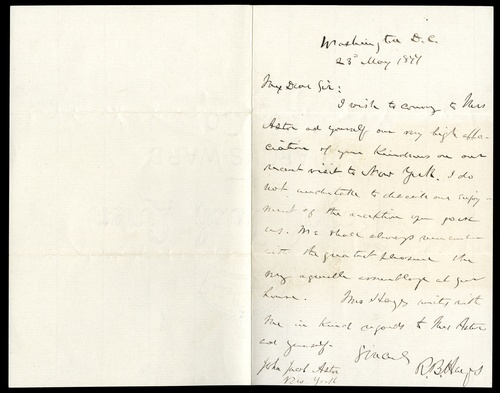 Washington D.C.
23d May 1877
My Dear Sir:
I wish to convey to Mrs
Astor and yourself our very high appre-
ciation of your kindness on our
recent visit to New York. I do
not undertake to describe our enjoy-
ment of the reception you gave
us. We shall always remember
with the greatest pleasure the
very agreeable assemblage at your
house. Mrs Hayes unites with
me in kind regards to Mrs Astor
and yourself.
Sincerely
R.B. Hayes
John Jacob Astor
New York